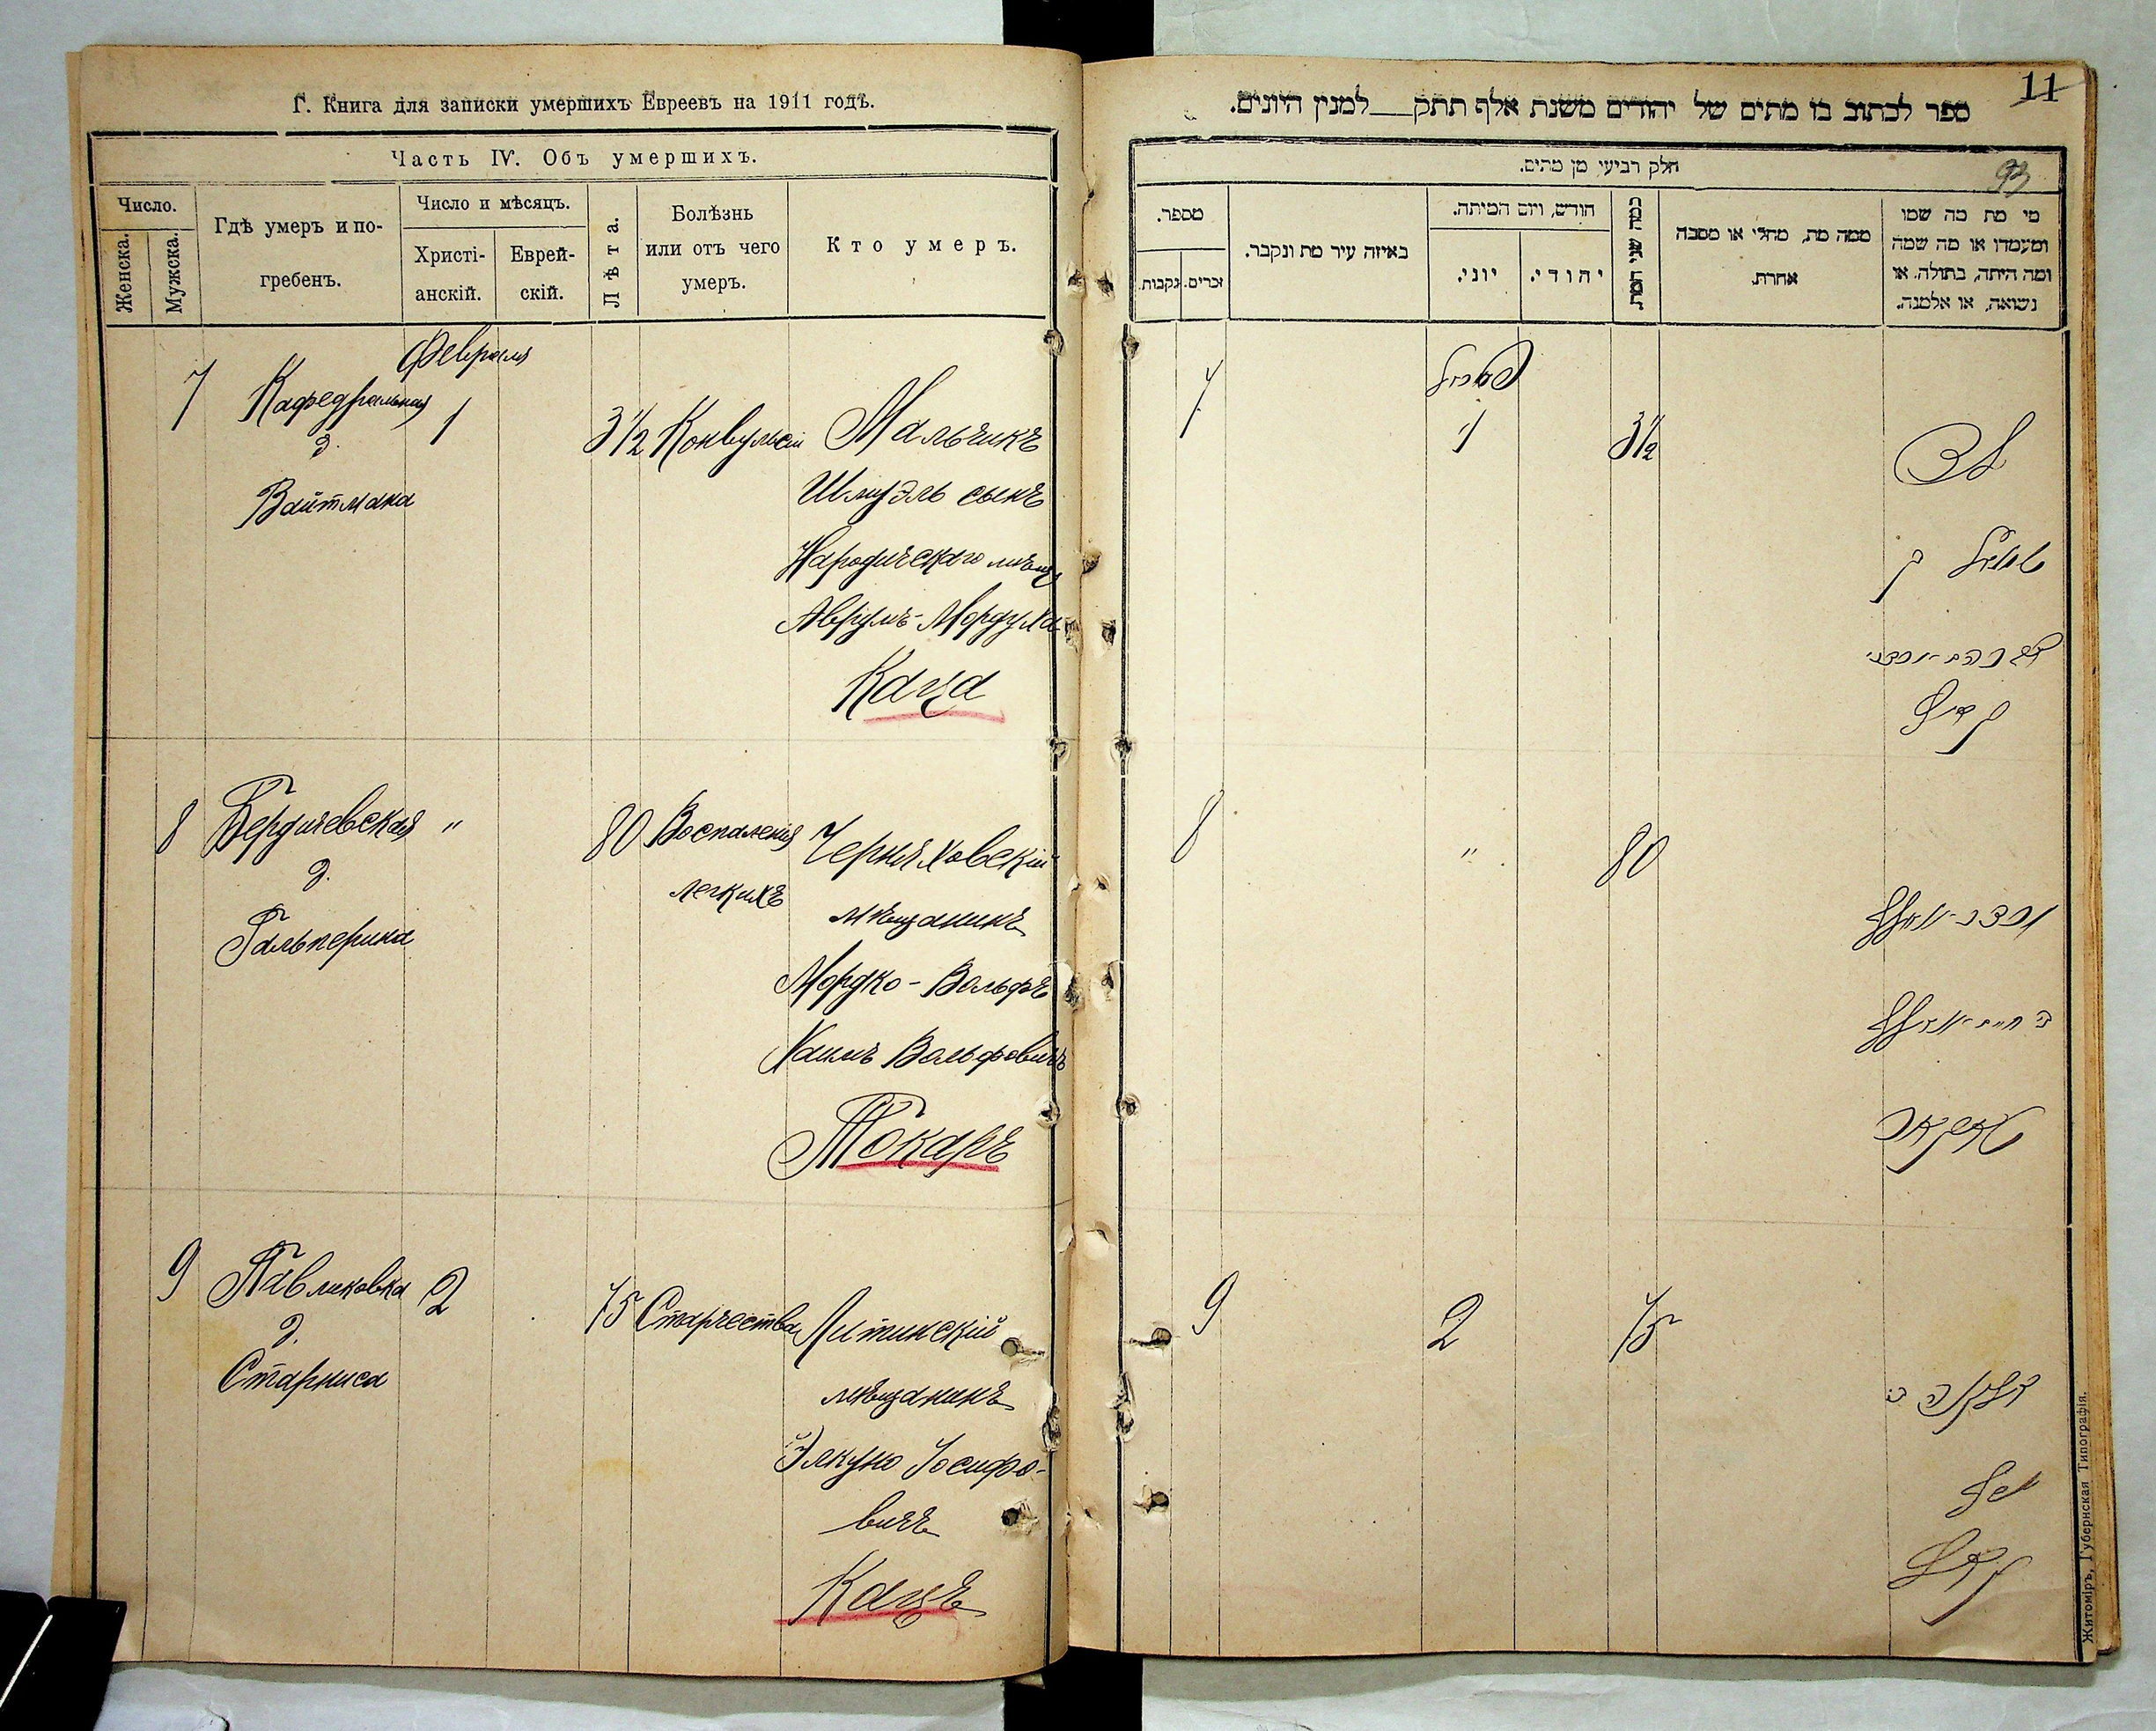 Г. Книга для записки умершихъ Евреевъ на 1911 годъ.
Часть IV. Объ умершихъ.
Число.
Женска.
Мужска.
Гдѣ умеръ и по-
гребенъ.
Число и мѣсяцъ.
Христі-
анскій.
Еврей-
скій.
Лѣта.
Болѣзнь
или отъ чего
умеръ.
Кто умеръ.
Февраля
7
Кафедральная
д.
Вайтмана
1
3 1/2
Конвульсіи
Мальчикъ
Шмуэль сынъ
Народическаго мѣщ
Аврумъ-Мордуха
Каца
8
Бердичевская
д.
Гальперина
"
80
Воспаленія
легкихъ
Черняховскій
мѣщанинъ
Мордко-Вольфъ
Хаимъ Вольфовичъ
Токаръ
9
Павликовка
д.
Старниса
2
75
Старчества
Литинскій
мѣщанинъ
Элкуно Іосифо-
вичъ
Кацъ
11
ספר לכתוב בו מתים של יהודים משנת אלף תתק למנין היונים.
חלק רביעי מן מתים.
93
מספר.
זכרים.
נקבות.
באיזה עיר מת ונקבר.
חודש, ויום המיתה.
יוני.
יהודי.
כמה שני המת
ממה מת, מחלי או מסבה
אחרת.
מי מת מה שמו
ומעמדו או מה שמה
ומה היתה, בתולה, או
נשואה, או אלמנה.
7
1
3 1/2
ילד
שמואל בן
אברהם-מרדכי
קאץ
8
"
80
מרדכי-וואלף
ב חיים-וואלף
טאקאר
9
2
75
אלקנה ב
יוסף
קאץ
Житоміръ, Губернская Типографія.